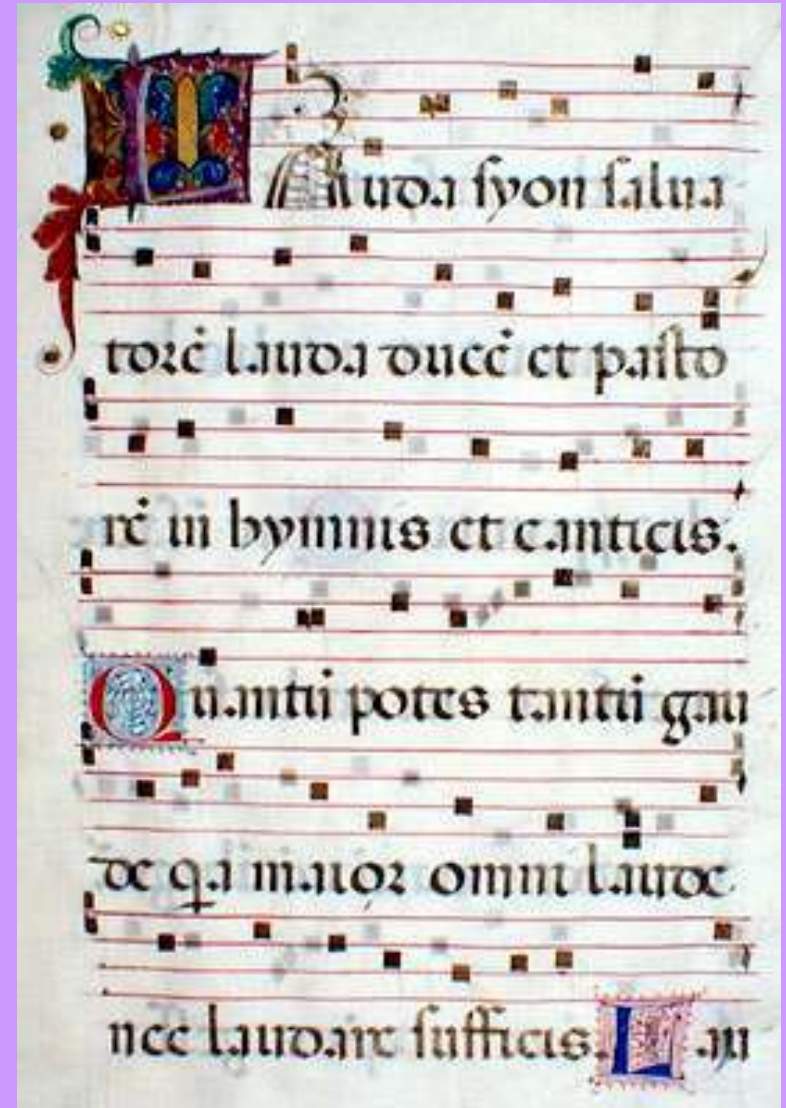 LAuda ſyon ſalua
torē lauda ducē et paſto
rē in hymnis et canticis.
Quantū potes tantū gau
de qa maior omni laude
nec laudare ſufficis. Lau